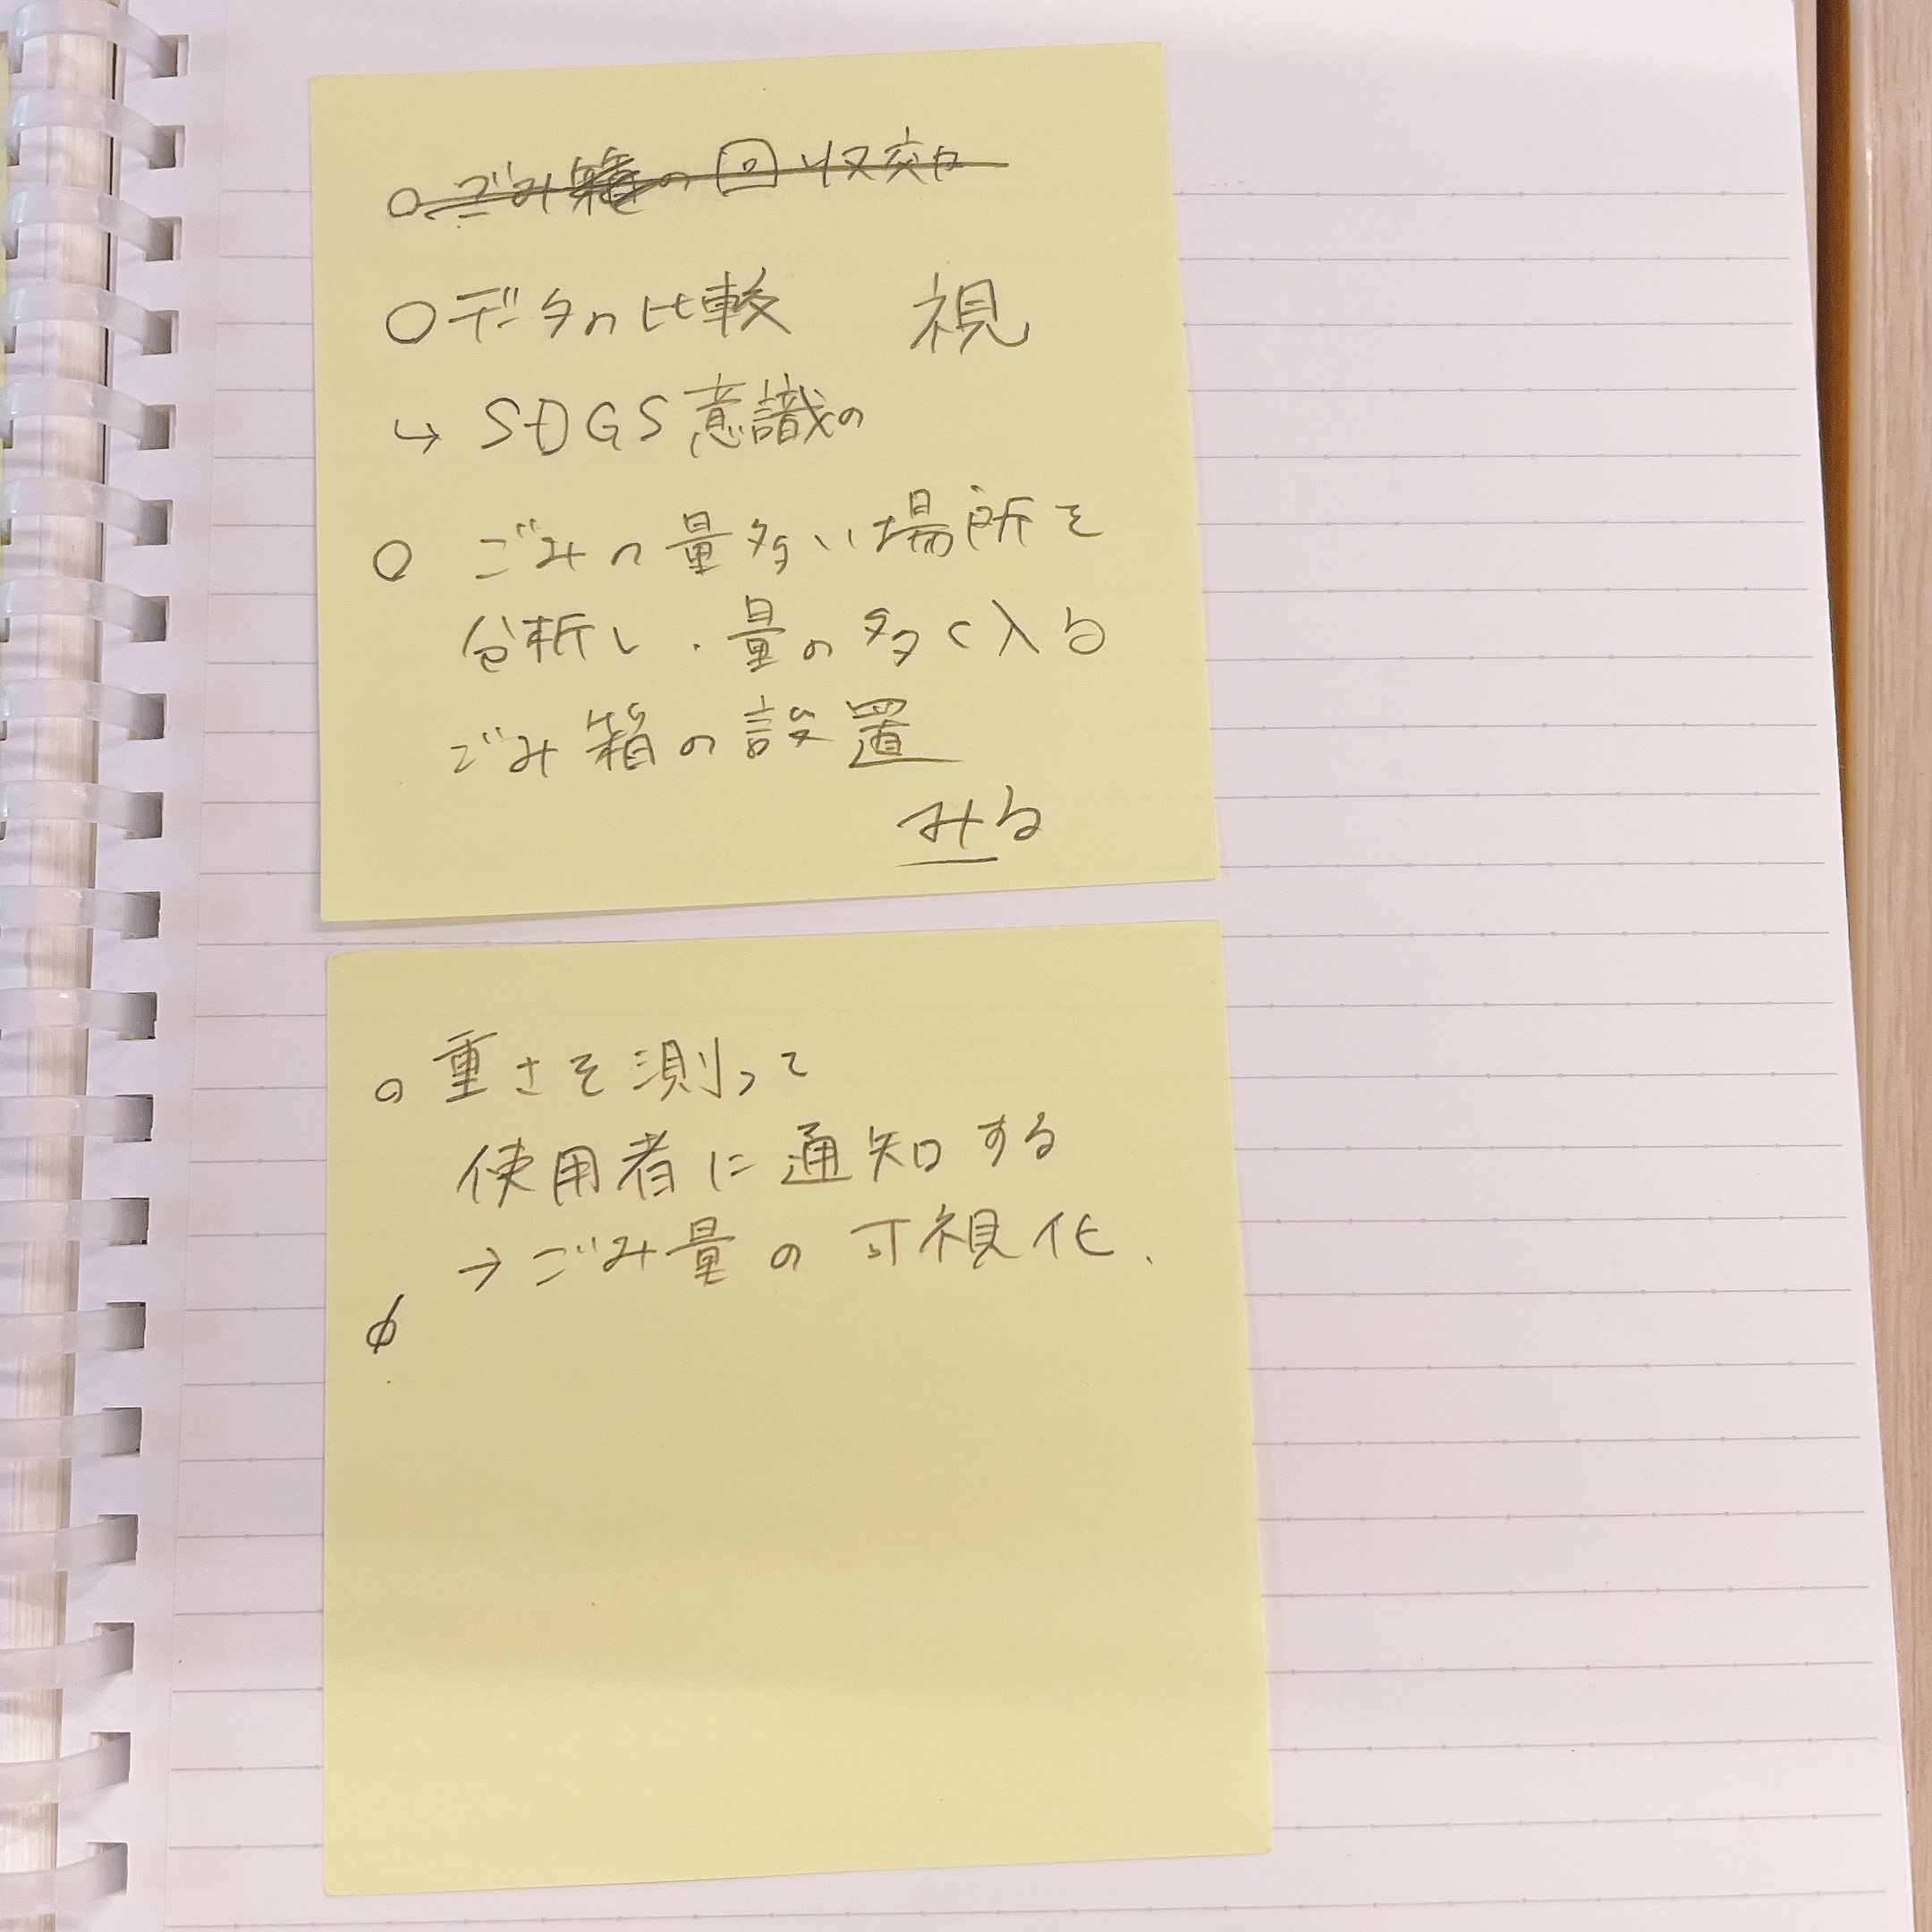 ○ごみ箱の回収交か
○データの比較 視
↳ SDGS意識の
○ ごみの量多い場所を
分析し、量の多く入る
ごみ箱の設置
みる
○重さを測って
使用者に通知する
→ごみ量の可視化、